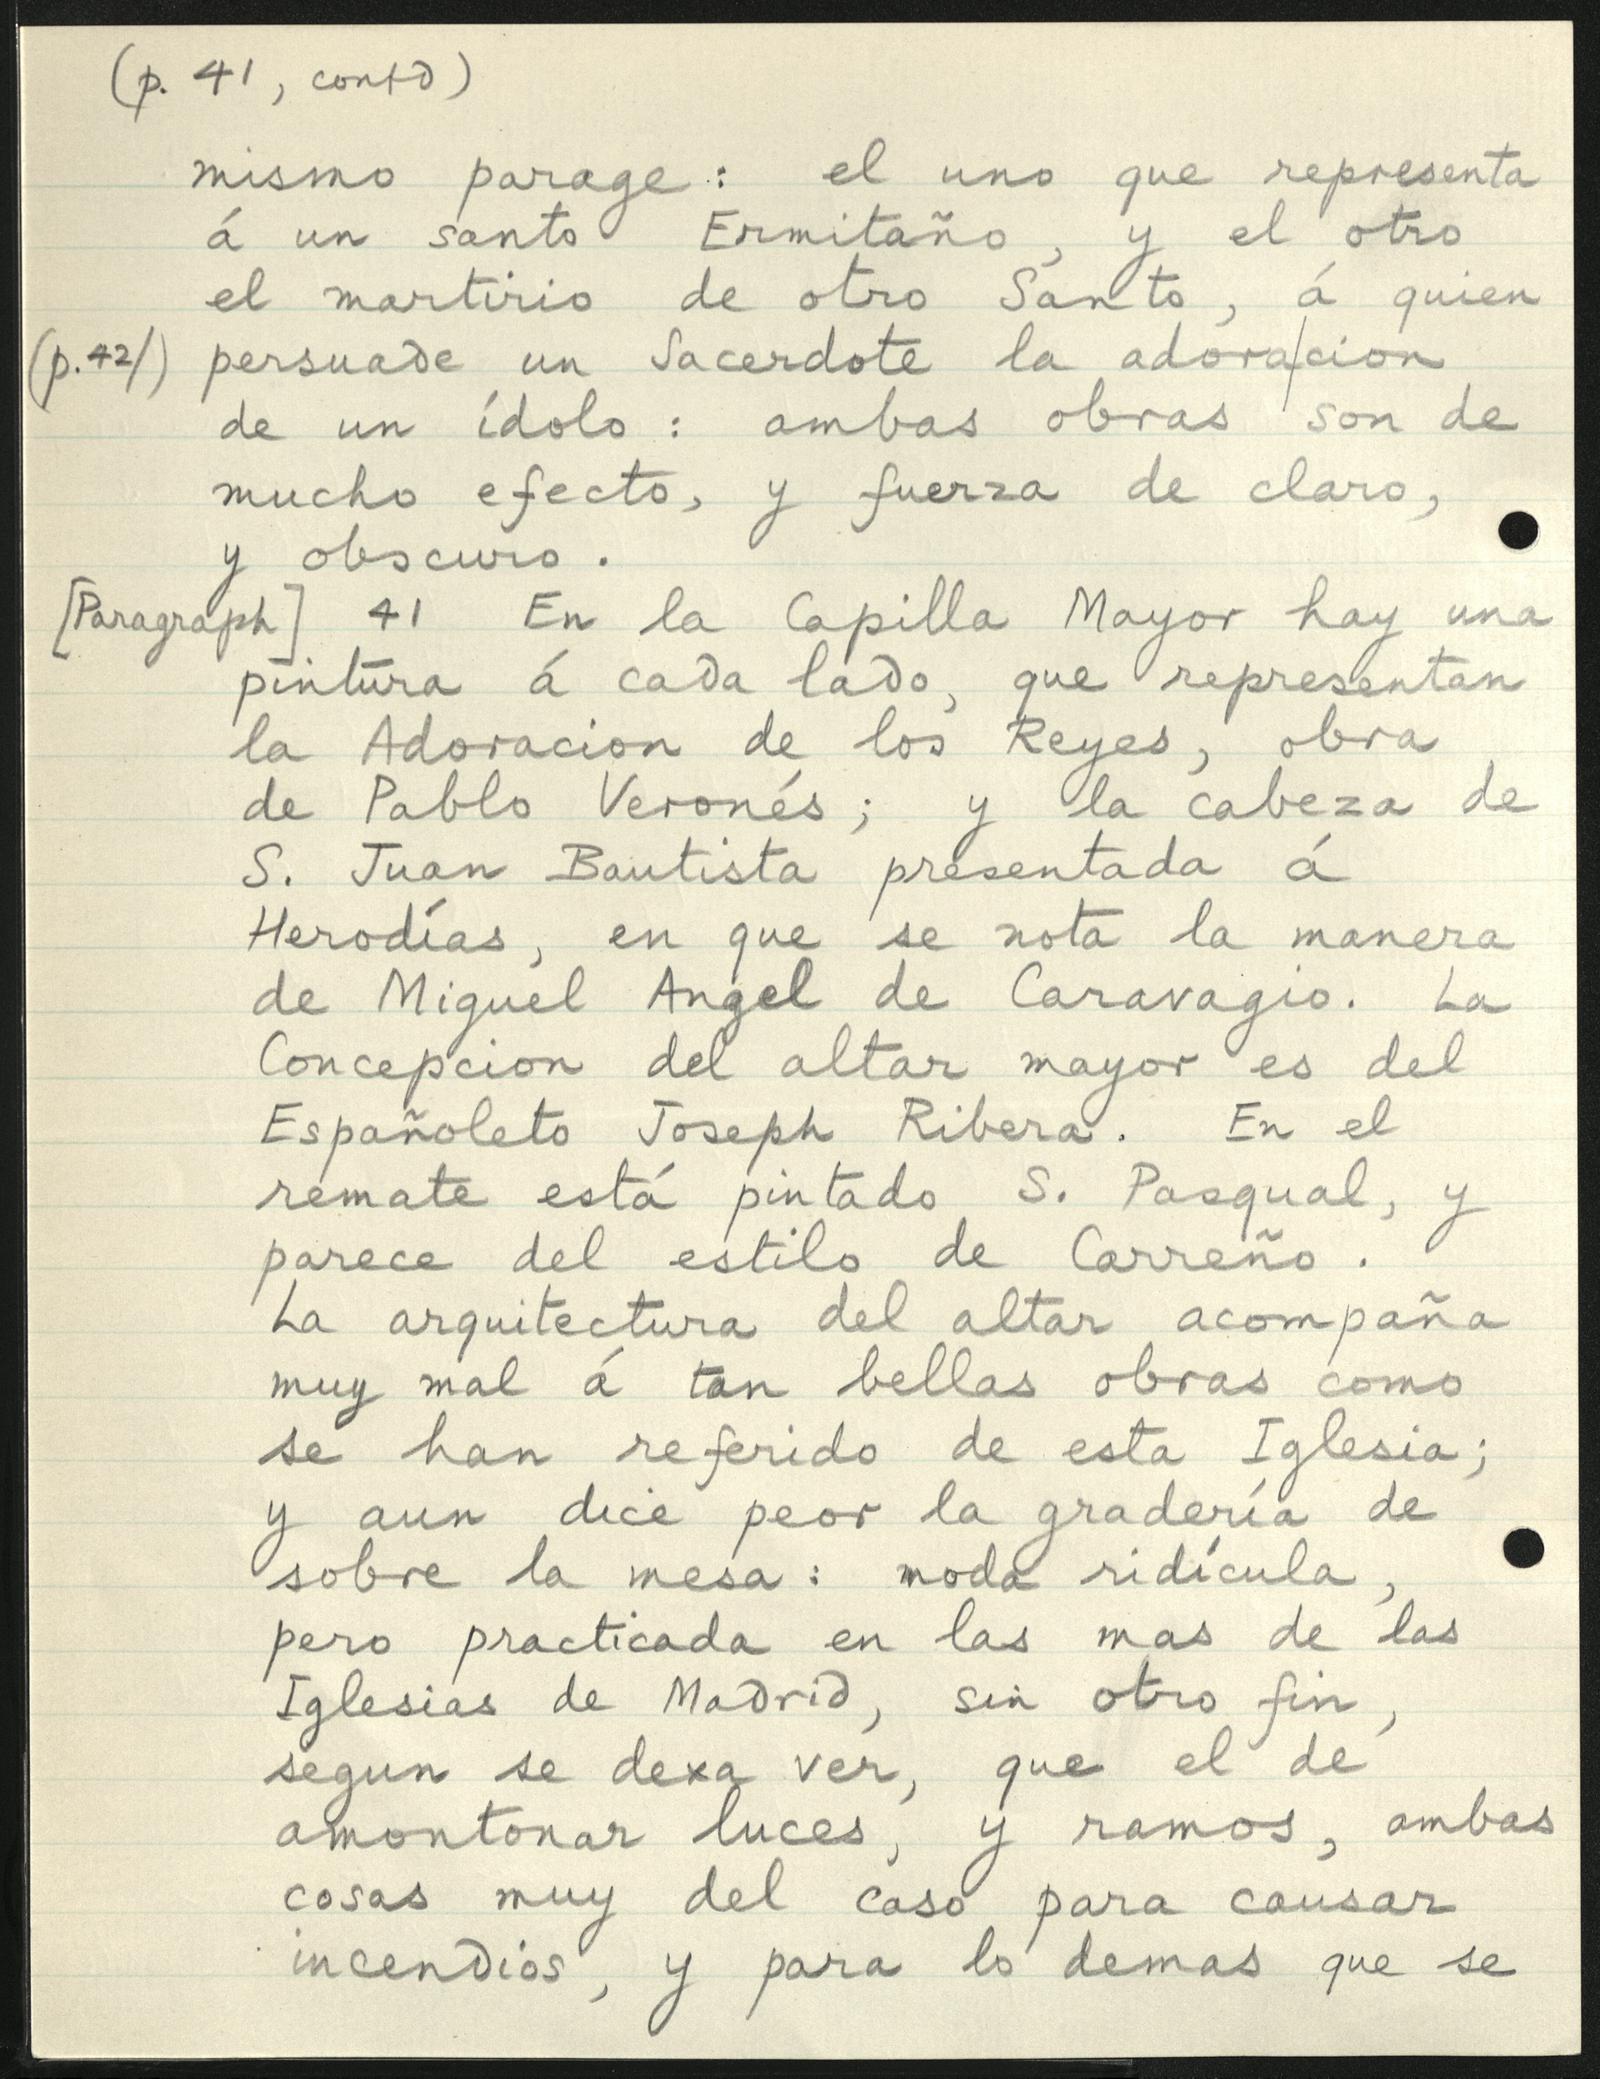 (p. 41, contd)
mismo parage: el uno que representa
á un santo Ermitaño, y el otro
el martirio de otro Santo, á quien
(p.42/) persuade un Sacerdote la adora/cion
de un ídolo: ambas obras son de
mucho efecto, y fuerza de claro,
y obscuro.
[Paragraph] 41 En la Capilla Mayor hay una
pintura á cada lado, que representan
la Adoracion de los Reyes, obra
de Pablo Veronés; y la cabeza de
S. Juan Bautista presentada á
Herodías, en que se nota la manera
de Miguel Angel de Caravagio. La
Concepcion del altar mayor es del
Españoleto Joseph Ribera. En el
remate está pintado S. Pasqual, y
parece del estilo de Carreño.
La arquitectura del altar acompaña
muy mal á tan bellas obras como
se han referido de esta Iglesia;
y aun dice peor la gradería de
sobre la mesa: moda ridícula,
pero practicada en las mas de las
Iglesias de Madrid, sin otro fin,
segun se dexa ver, que el de
amontonar luces, y ramos, ambas
cosas muy del caso para causar
incendios, y para lo demas que se